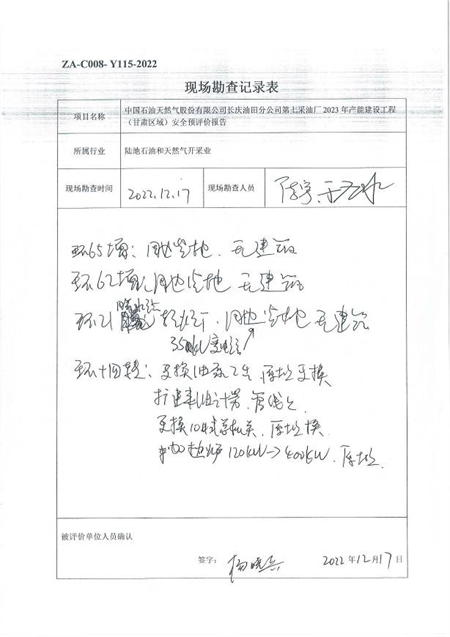 ZA-C008- Y115-2022
现场勘查记录表
项目名称
中国石油天然气股份有限公司长庆油田分公司第七采油厂 2023 年产能建设工程
（甘肃区域）安全预评价报告
所属行业
陆地石油和天然气开采业
现场勘查时间
2022.12.17
现场勘查人员
环65增：用地空地，无建筑
环62增：用地空地 无建筑
环21 用地空地 无建筑
35kV变电站
环十四转：更换油泵2台 原址更换
更换 原址换
加热炉120kW→400kW，原址
被评价单位人员确认
签字：
2022年12月17日